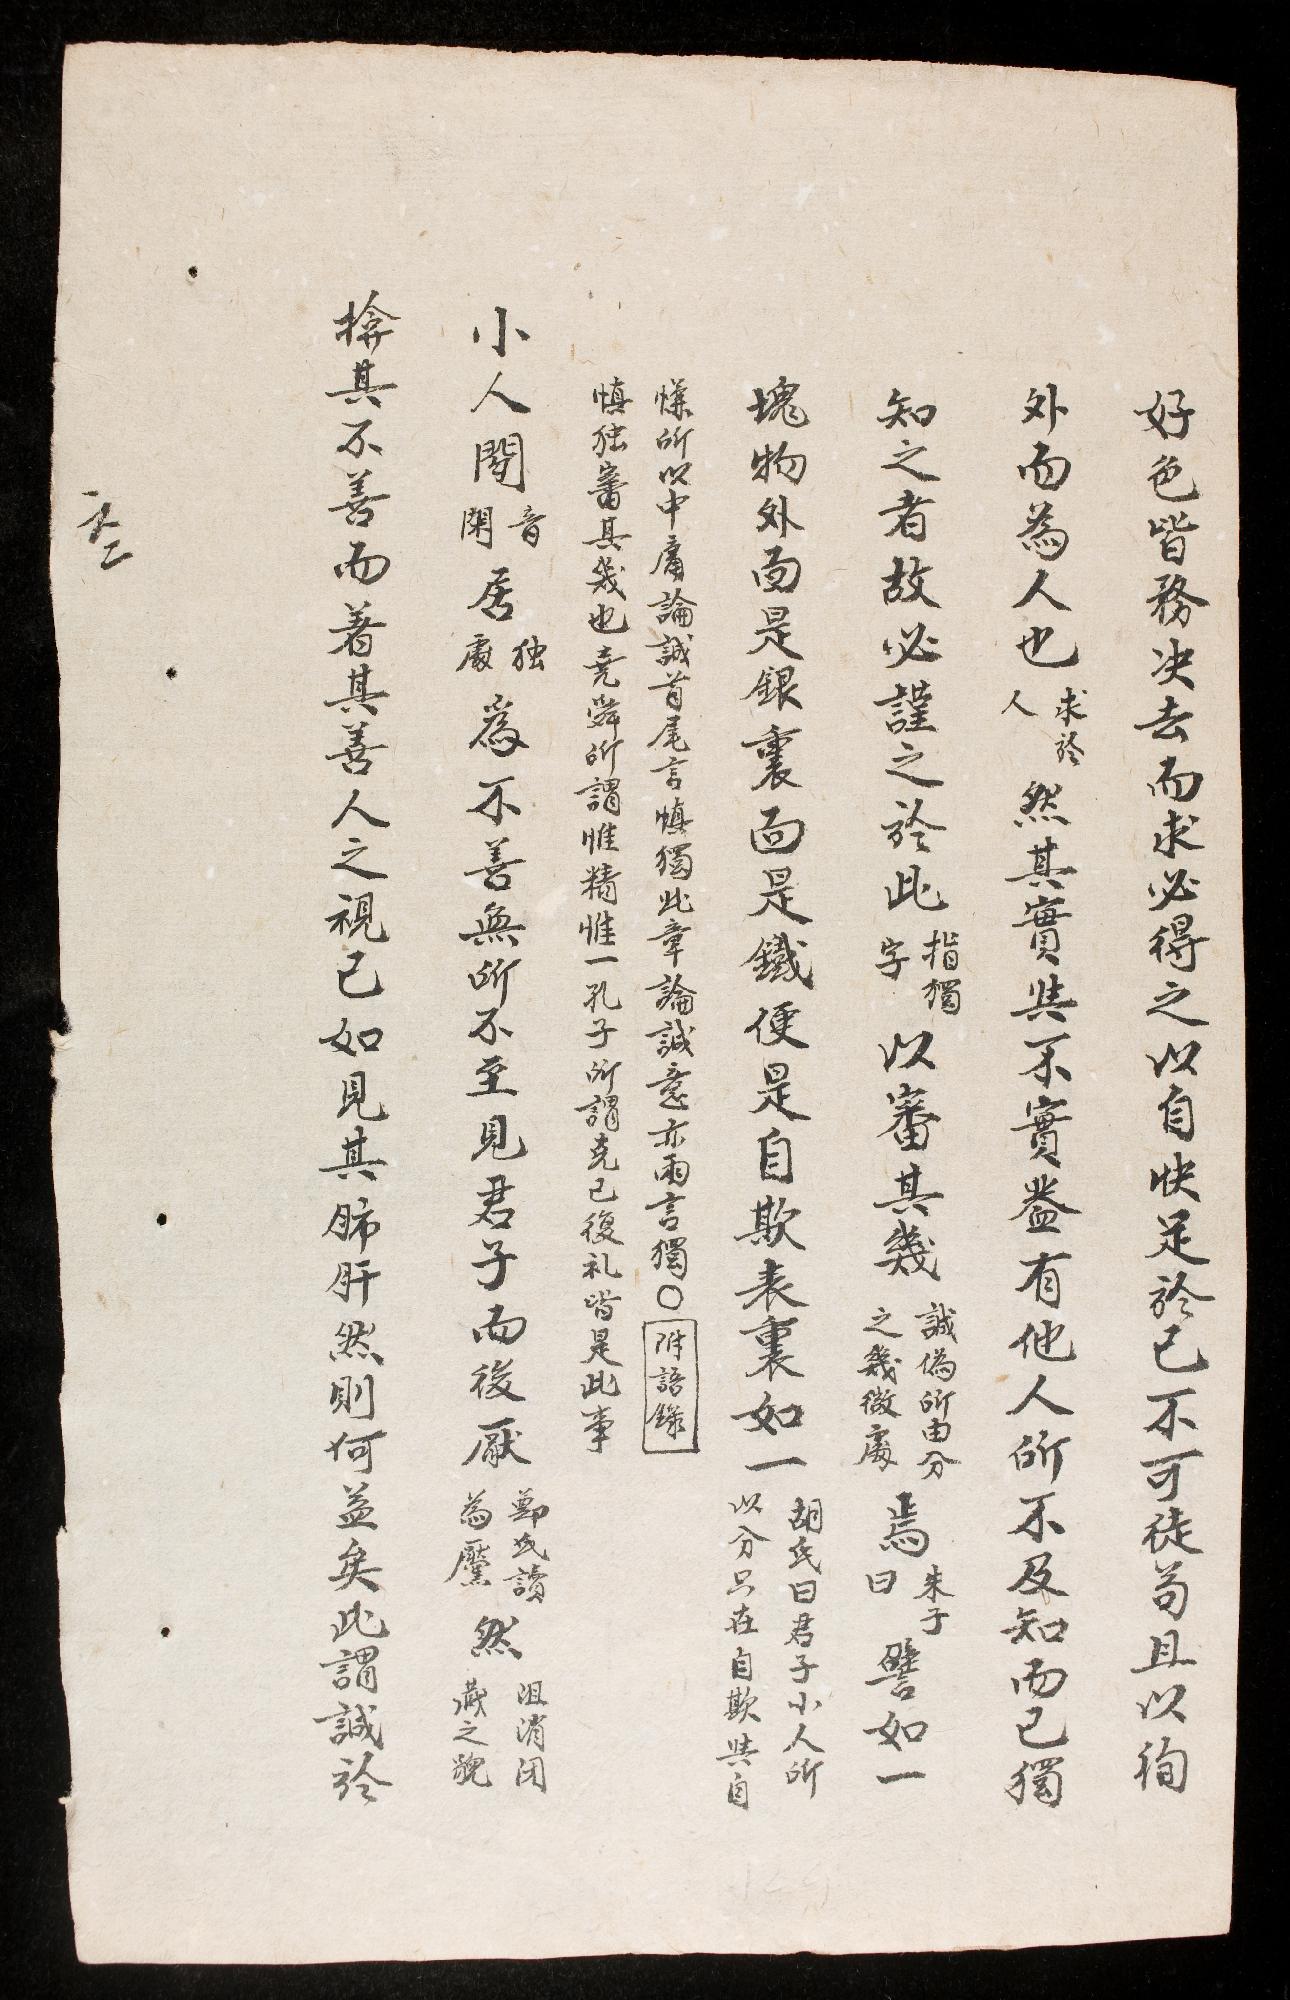 好色皆務决去而求必得之以自快足於己不可徒苟且以徇
外而為人也求於人然其實與不實盖有他人所不及知而己獨
知之者故必謹之於此指獨字以審其幾誠偽所由分之幾微處焉朱子曰譬如一
塊物外面是銀裏面是鐵便是自欺表裏如一胡氏曰君子小人所以分只在自欺與自
慊所以中庸論誠首尾言慎獨此章論誠意亦兩言獨〇附語錄
慎独審其幾也尭舜所謂惟精惟一孔子所謂克己復礼皆是此事
小人閒音閑居独處為不善無所不至見君子而後厭鄭氏讀為黶然沮消闭藏之貌
揜其不善而著其善人之視己如見其肺肝然則何益矣此謂誠於